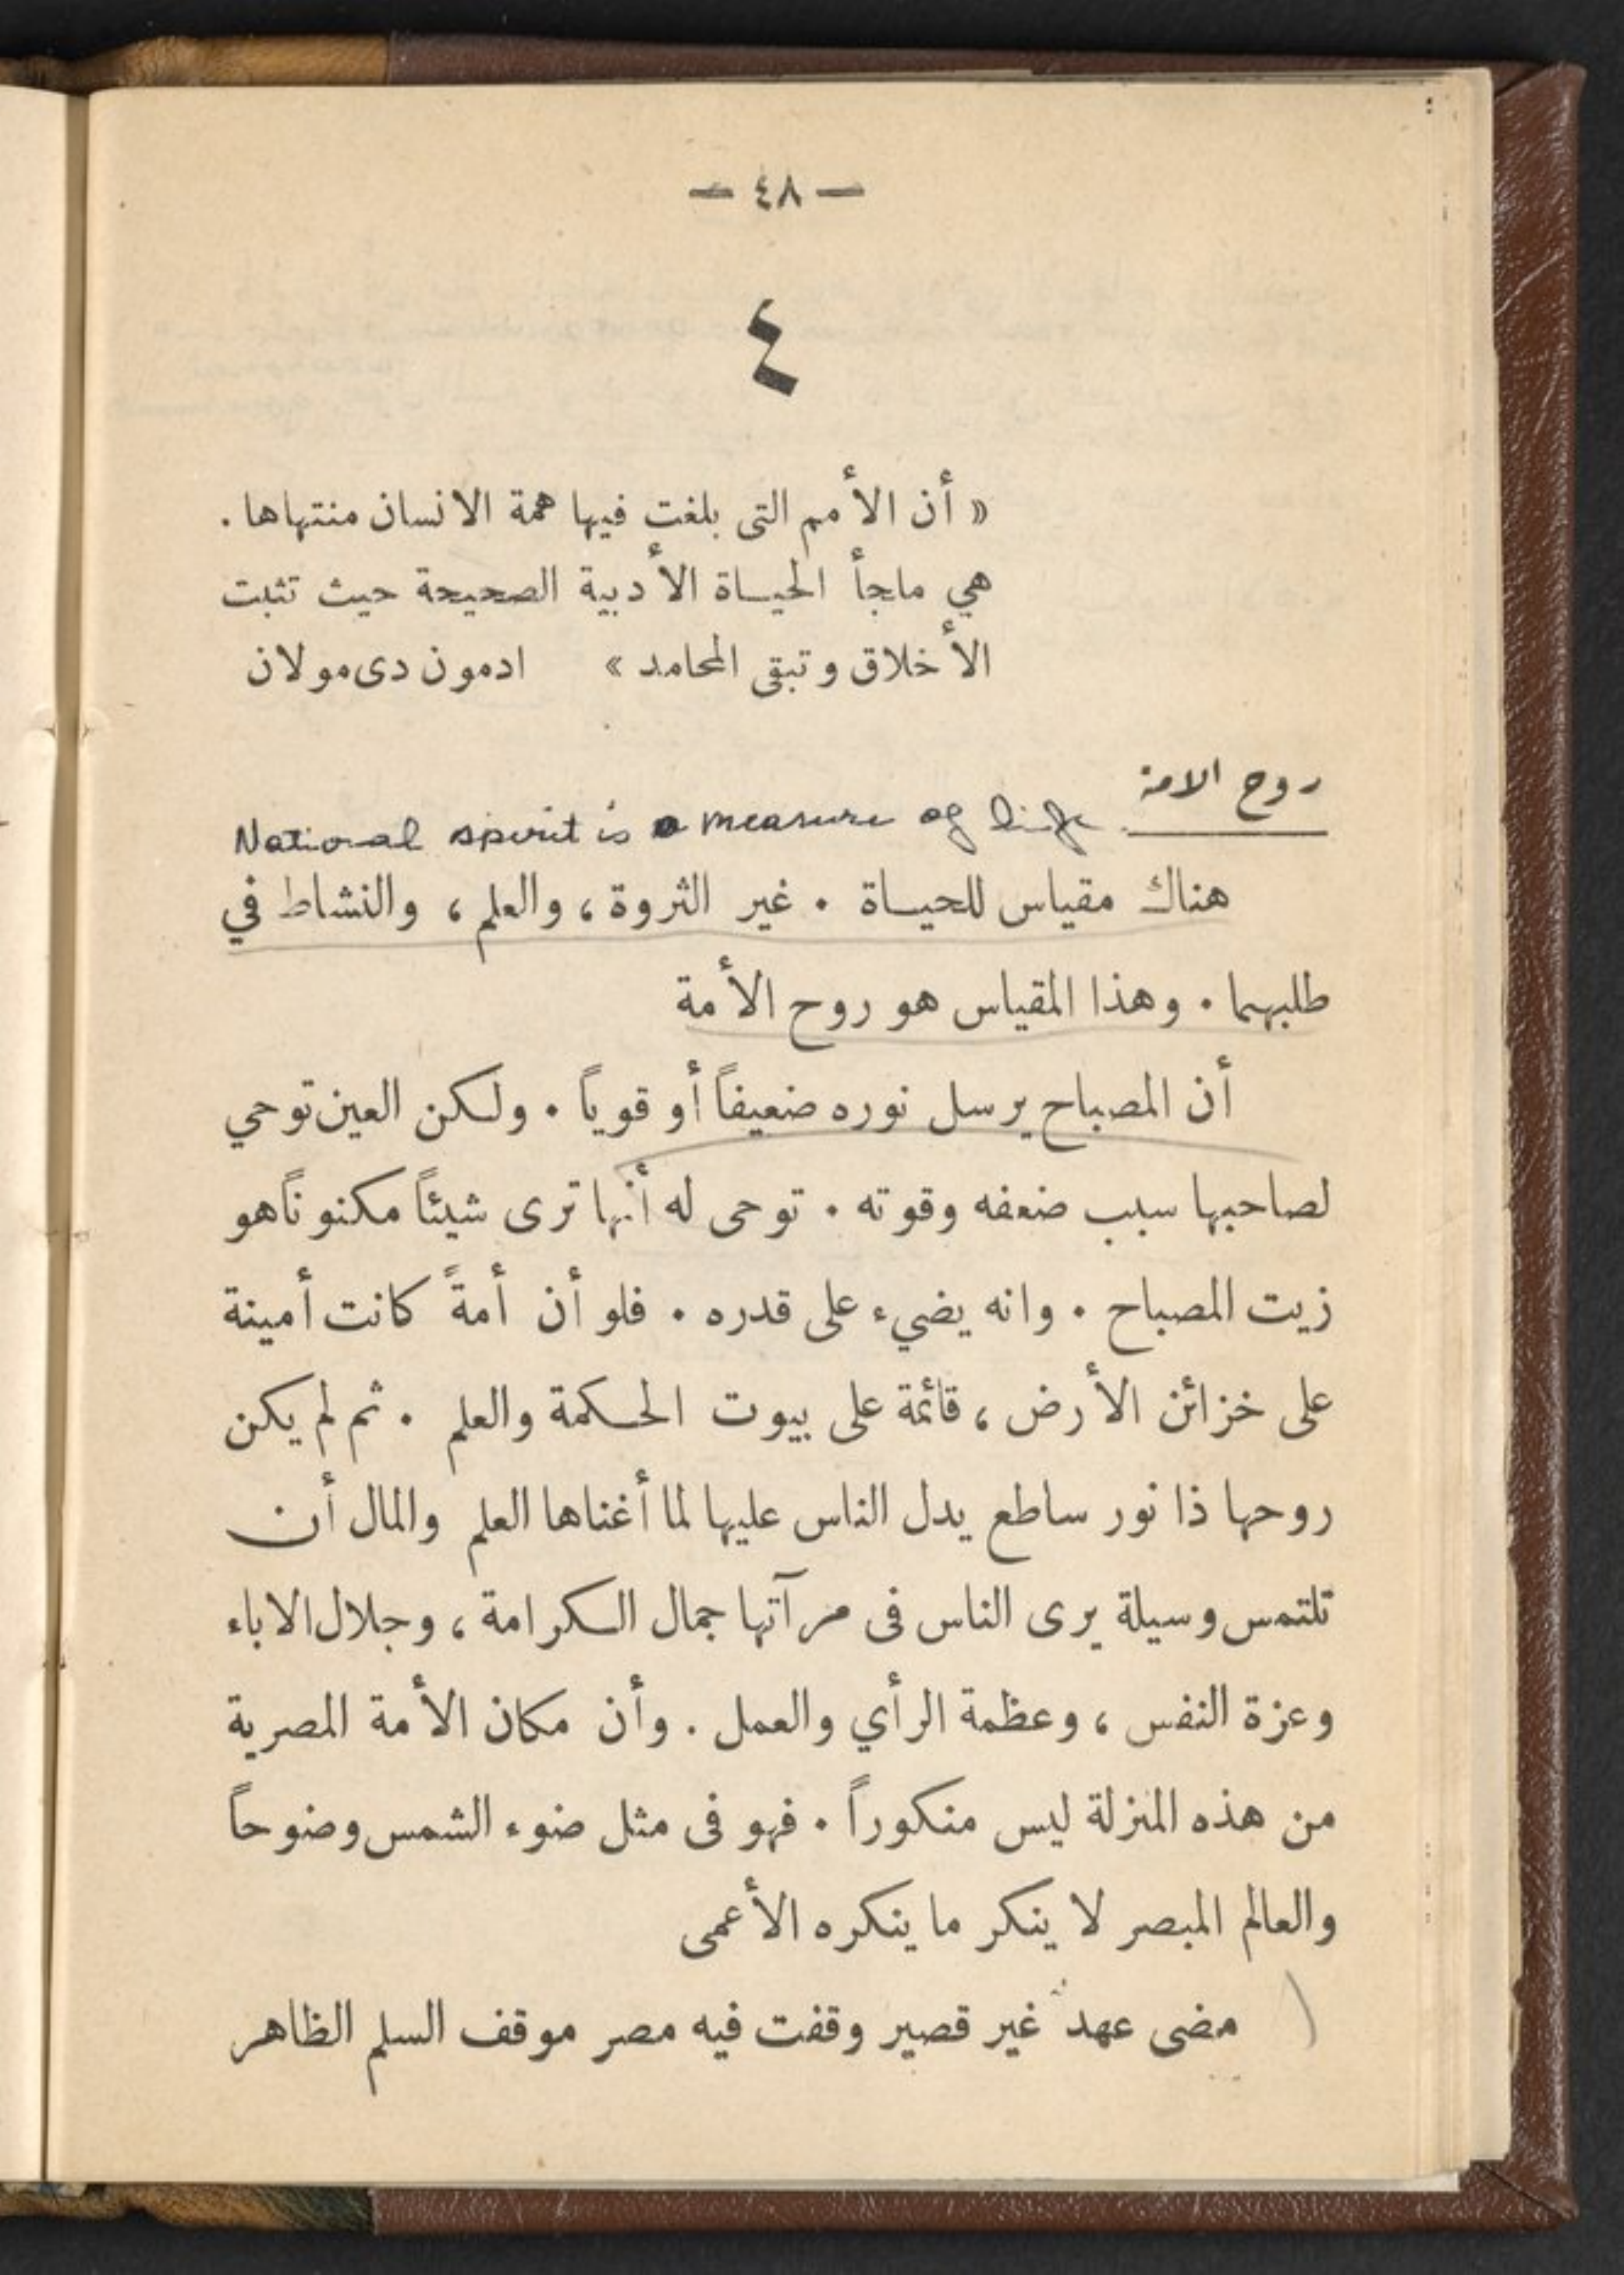 — ٤٨ —
٤
« أن الأمم التى بلغت فيها همة الانسان منتهاها .
هي ملجأ الحيــاة الأدبية الصحيحة حيث تثبت
الأخلاق وتبقى المحامد » ادمون دى مولان
روح الامة
National spirit is a measure of life
هناك مقياس للحيــاة . غير الثروة ، والعلم ، والنشاط في
طلبهما . وهذا المقياس هو روح الأمة
أن المصباح يرسل نوره ضعيفاً أو قوياً . ولكن العين توحي
لصاحبها سبب ضعفه وقوته . توحى له أنها ترى شيئاً مكنوناً هو
زيت المصباح . وانه يضيء على قدره . فلو أن أمةً كانت أمينة
على خزائن الأرض ، قائمة على بيوت الحكمة والعلم . ثم لم يكن
روحها ذا نور ساطع يدل الناس عليها لما أغناها العلم والمال أن
تلتمس وسيلة يرى الناس فى مرآتها جمال الكرامة ، وجلال الاباء
وعزة النفس ، وعظمة الرأي والعمل . وأن مكان الأمة المصرية
من هذه المنزلة ليس منكوراً . فهو فى مثل ضوء الشمس وضوحاً
والعالم المبصر لا ينكر ما ينكره الأعمى
مضى عهد غير قصير وقفت فيه مصر موقف السلم الظاهر